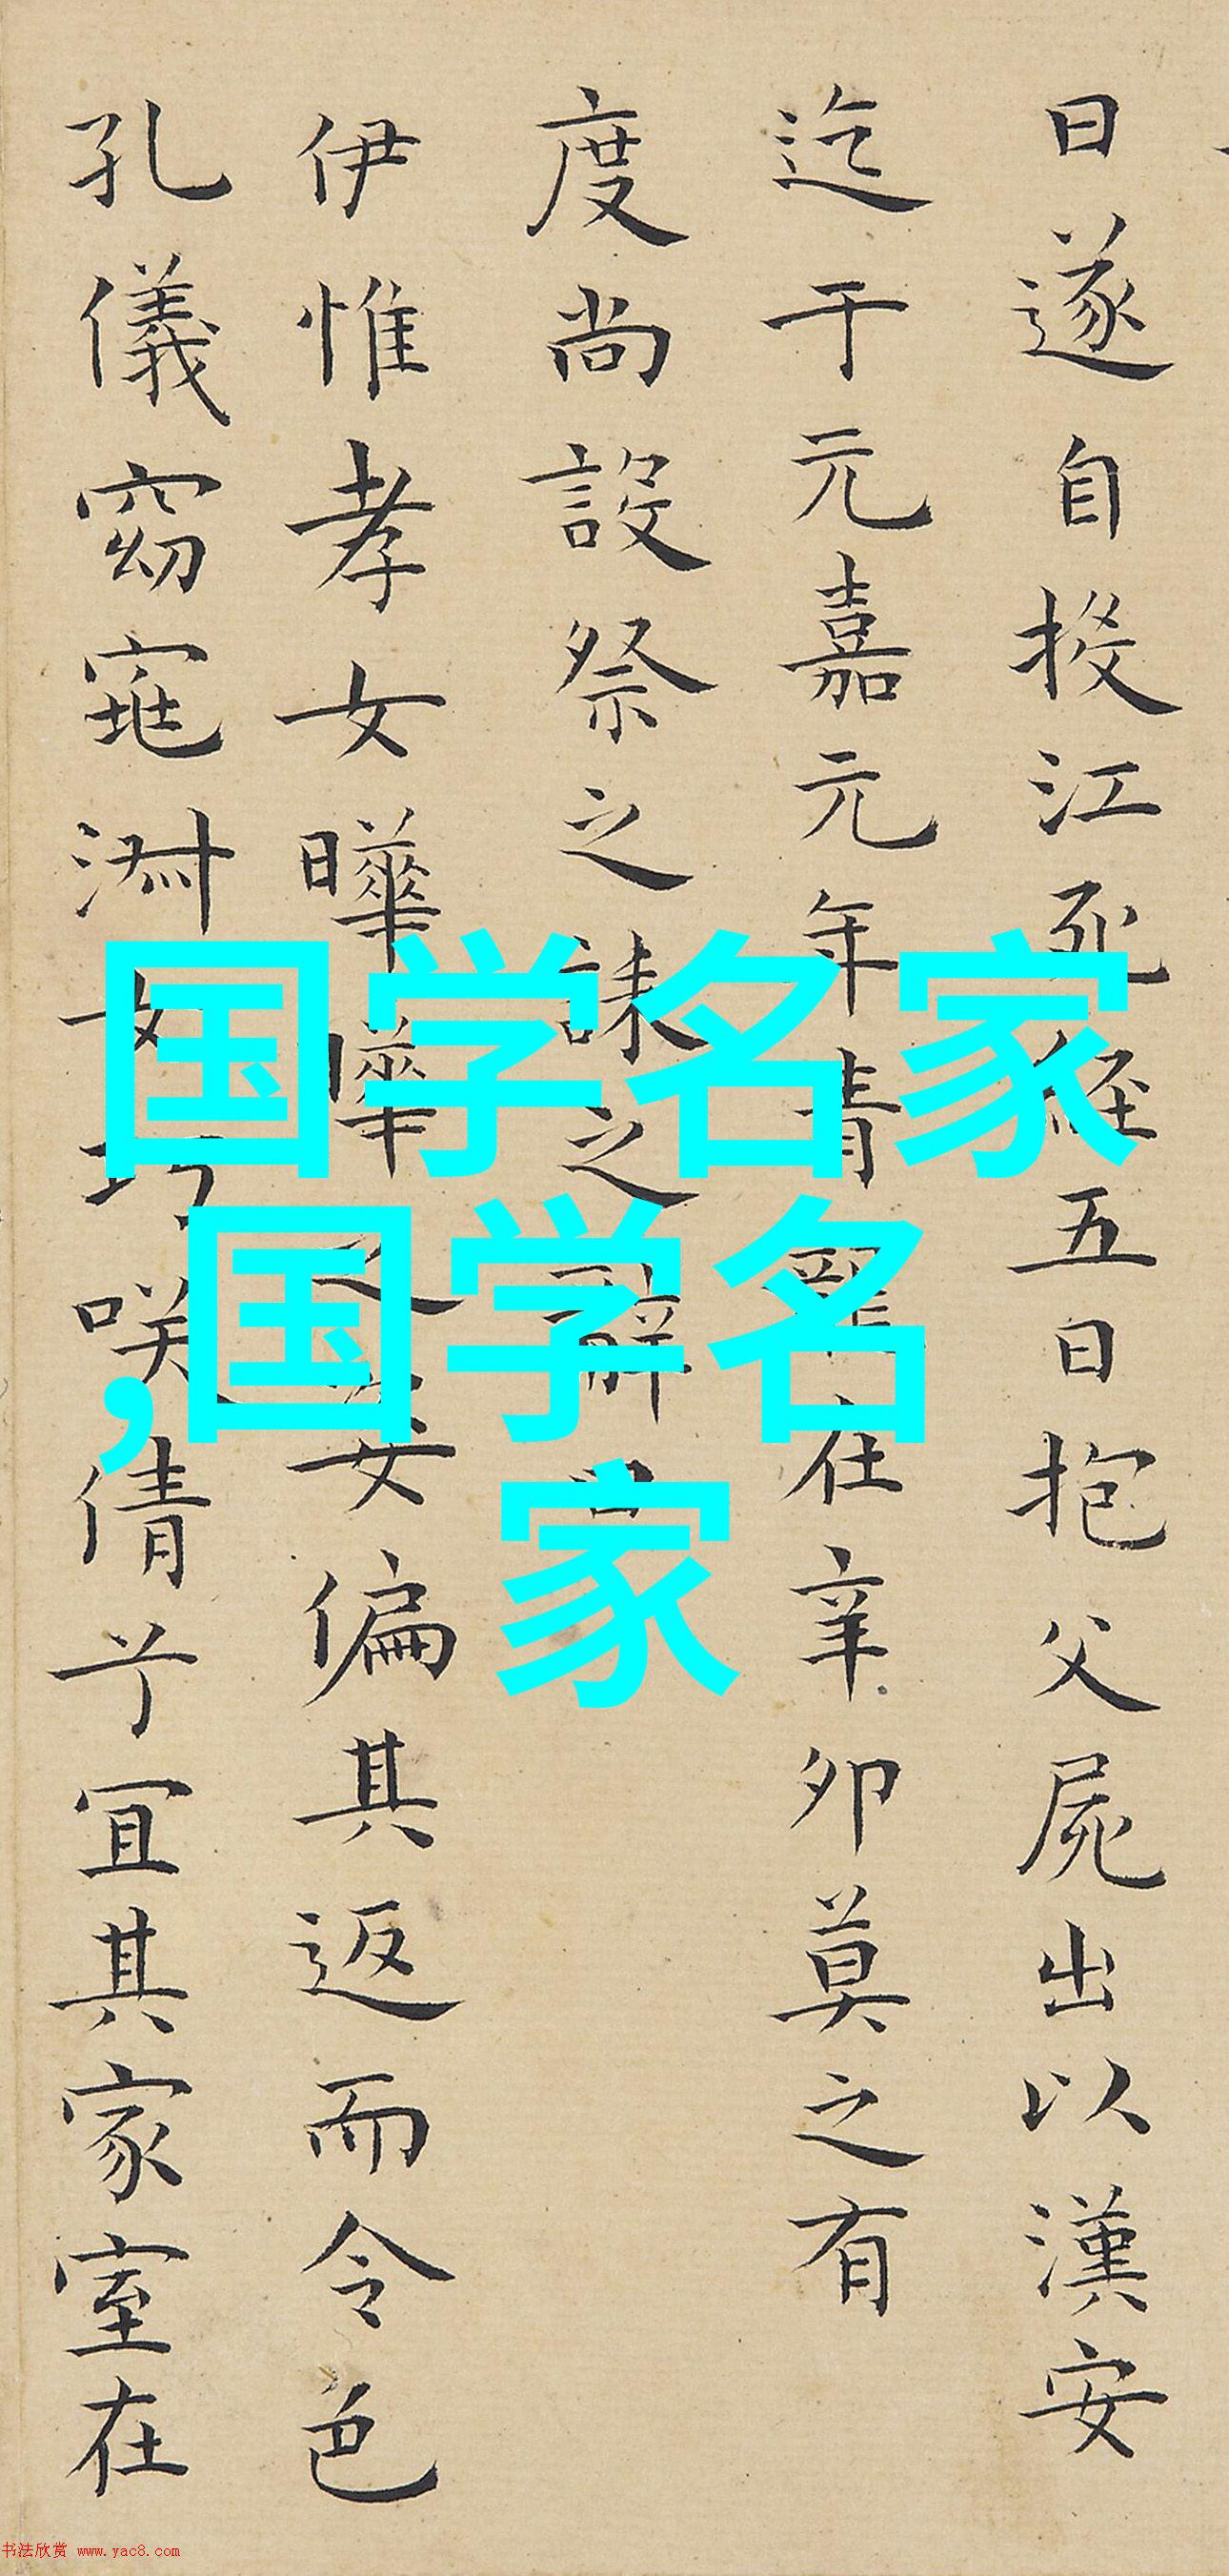 日遂自投江死經五日抱父屍出以漢安
迄于元嘉元年青龍在辛卯莫之有
度尚設祭之誄之辭
伊惟孝女曄曄之姿偏其返而令色
孔儀窈窕淑女巧咲倩兮宜其家室在
国学名家
,国学名
家
书法欣赏 www.yac8.com